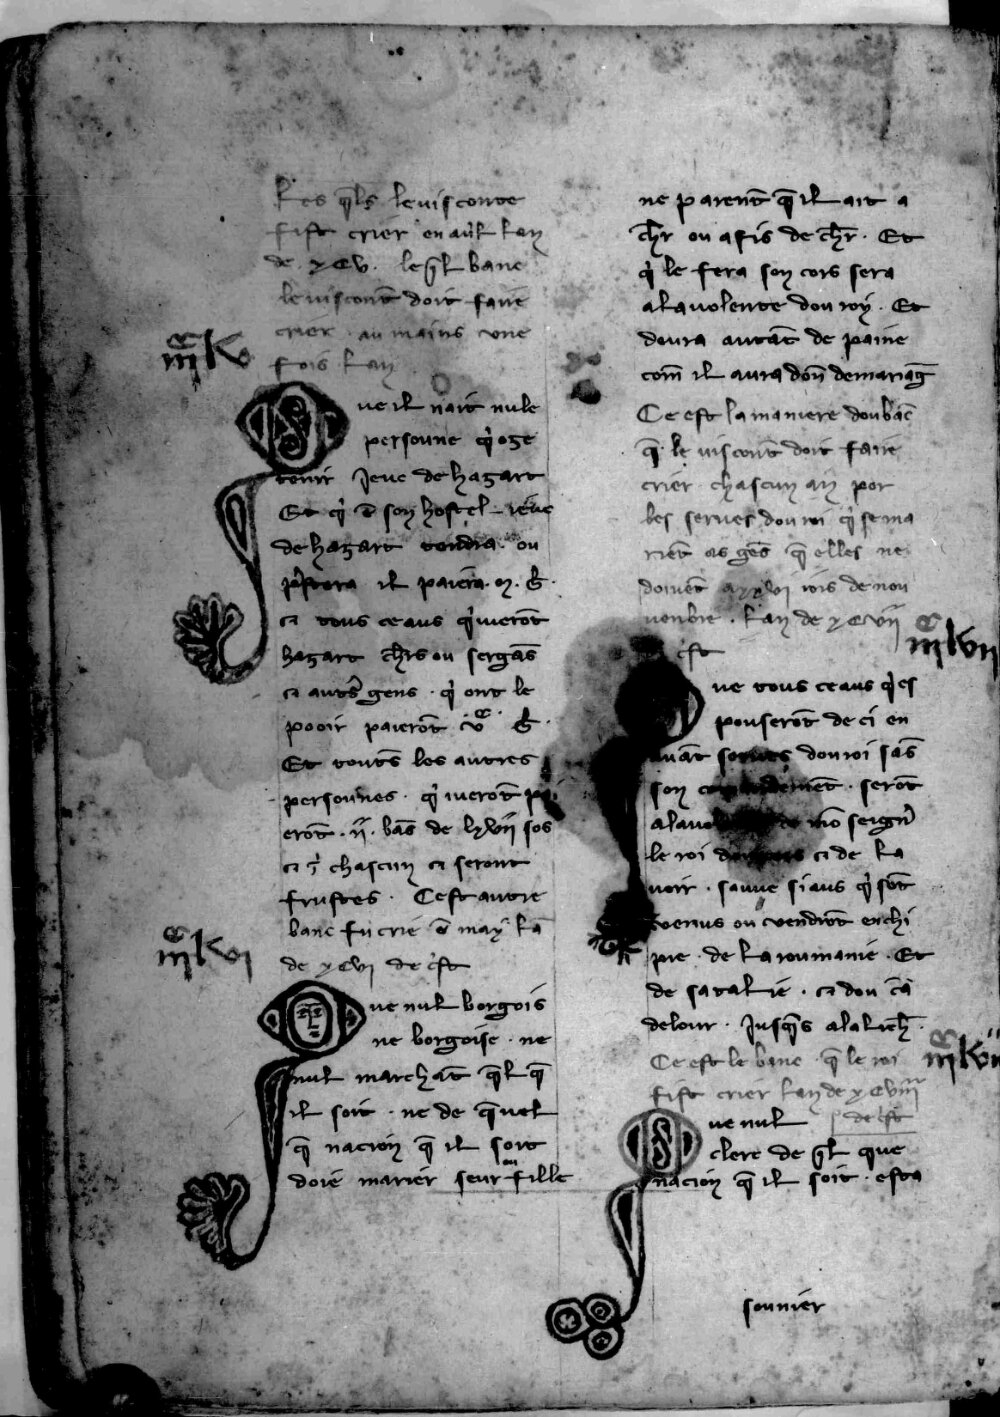 Les q̄ls le visconte
fist crier en avl̄ lan
de xcv. le q̄l banc
le viscont̄ doit faire
crier au mains une
fois lan
Que il nait nule
persoune q̇ oze
tenir jeuc de hazart
Et q̇ ē son hostel jeuc
de hazart tendra ou
p̄stera il paiera m. b̄.
et tous ceaus q̇ iuerōt
hazart ch̄rs ou sergās
et autr̄s gens q̇ ont le
pooir paierōt v̄c b̄.
Et toutes les autres
persounes q̇ iuerōt pai
erōt .ii. bās de lxvii sos
chascun et seront
frustes. Cest autre
banc fu crie ē may lā
de xcvi de c̄st
Que nul borgois
ne borgoise ne
nul marchāt q̄l q̄
il soit ne de q̄uel
q̄ nacion q̄ il soit
doie marier seur ou fille
ne parent̄ q̄ il ait a
ch̄r ou a fis de ch̄r. Et
q̇ le fera son cors sera
a la volente dou roy. Et
doura autāt de paine
com̄ il aura don̄ de mariaḡ
Ce est la maniere dou bāc
q̄ le viscont̄ doit faire
crier chascun an por
les serves dou roi q̇ se ma
riēt as gēs q̄ elles ne
doivēt a xxvi iors de nou
venbre. lan de xcvii
c̄st
Que tous ceaus q̇ es
pouserōt de ci en
avāt serves dou roi sās
son cōmandement serōt
a la volente de mō seign̄r
le roi dou cors et de la
voir. sauve siaus q̇ sōt
venus ou vendrōt en chi
pre de la roumanie. Et
de satalie. et dou cā
delour. jusq̄s a la lich̄.
Ce est le banc q̄ le roi
fist crier lan de xcviii
de c̄st
Que nul
clerc de q̄l que
nacion q̄ il soit. esta
sounier